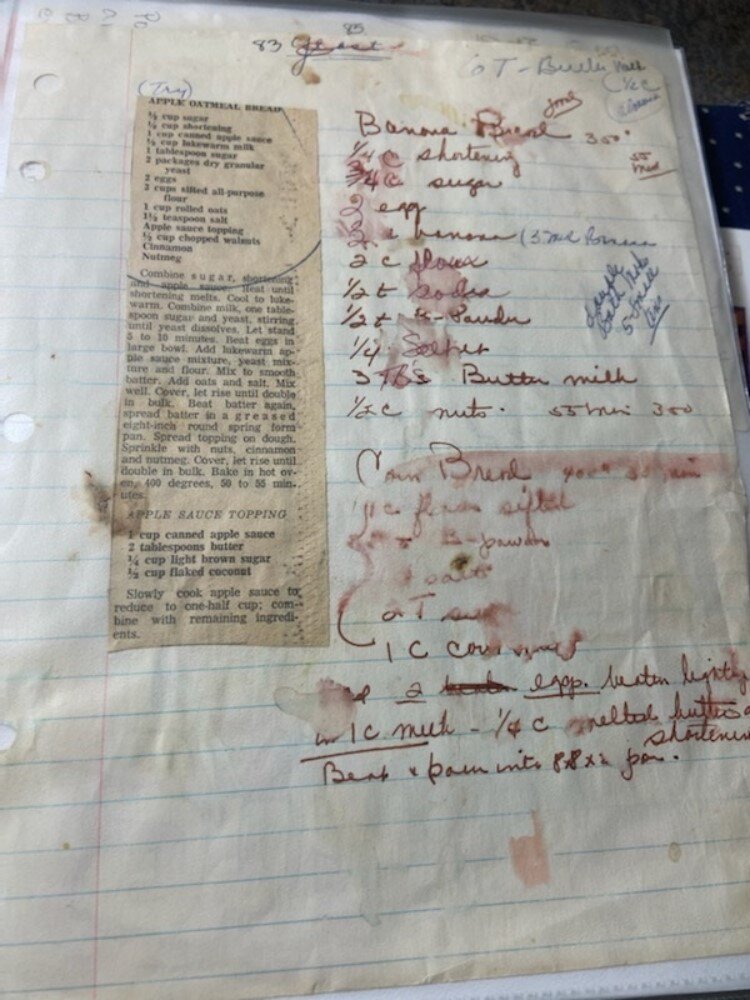 85
83
(Try)
APPLE OATMEAL BREAD
½ cup sugar
½ cup shortening
1 cup canned apple sauce
½ cup lukewarm milk
1 tablespoon sugar
2 packages dry granular
yeast
2 eggs
3 cups sifted all-purpose
flour
1 cup rolled oats
1½ teaspoon salt
Apple sauce topping
½ cup chopped walnuts
Cinnamon
Nutmeg
Combine sugar, shortening
and apple sauce. Heat until
shortening melts. Cool to luke-
warm. Combine milk, one table-
spoon sugar and yeast, stirring
until yeast dissolves. Let stand
5 to 10 minutes. Beat eggs in
large bowl. Add lukewarm ap-
ple sauce mixture, yeast mix-
ture and flour. Mix to smooth
batter. Add oats and salt. Mix
well. Cover, let rise until double
in bulk. Beat batter again,
spread batter in a greased
eight-inch round spring form
pan. Spread topping on dough.
Sprinkle with nuts, cinnamon
and nutmeg. Cover, let rise until
double in bulk. Bake in hot ov-
en, 400 degrees, 50 to 55 min-
utes.
APPLE SAUCE TOPPING
1 cup canned apple sauce
2 tablespoons butter
¼ cup light brown sugar
½ cup flaked coconut
Slowly cook apple sauce to
reduce to one-half cup; com-
bine with remaining ingredi-
ents.
Banana Bread 350°
¼ c shortening
¾ c sugar
2 egg
banana
2 c flour
½ t soda
½ t B-Powder
¼ Salt
3 Tbs Butter milk
½ c nuts. 55 min 350
Corn Bread 400°
1 c flour sifted
B-powder
salt
2 T
1 C corn
2 egg. beaten lightly
1 c milk - ¼ c melted butter or
shortening
Beat & pour into 8x8x2 pan.